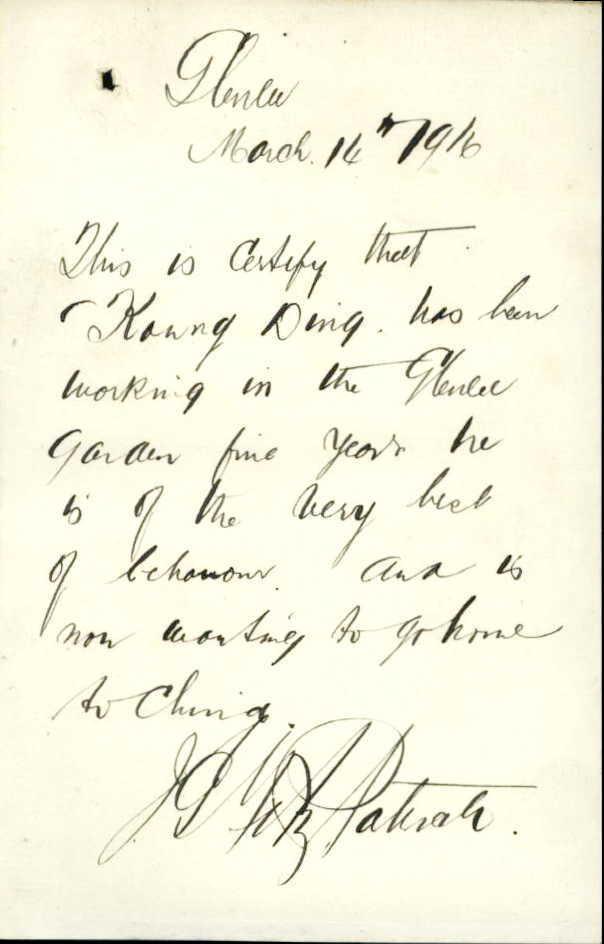 Glenlee
March 14th 1916
This is Certify that
Kowng Ding. has been
working in the Glenlee
Garden five years he
is of the very best
of behaviour. and is
now wanting to go home
to China.
J G FitzPatrick.